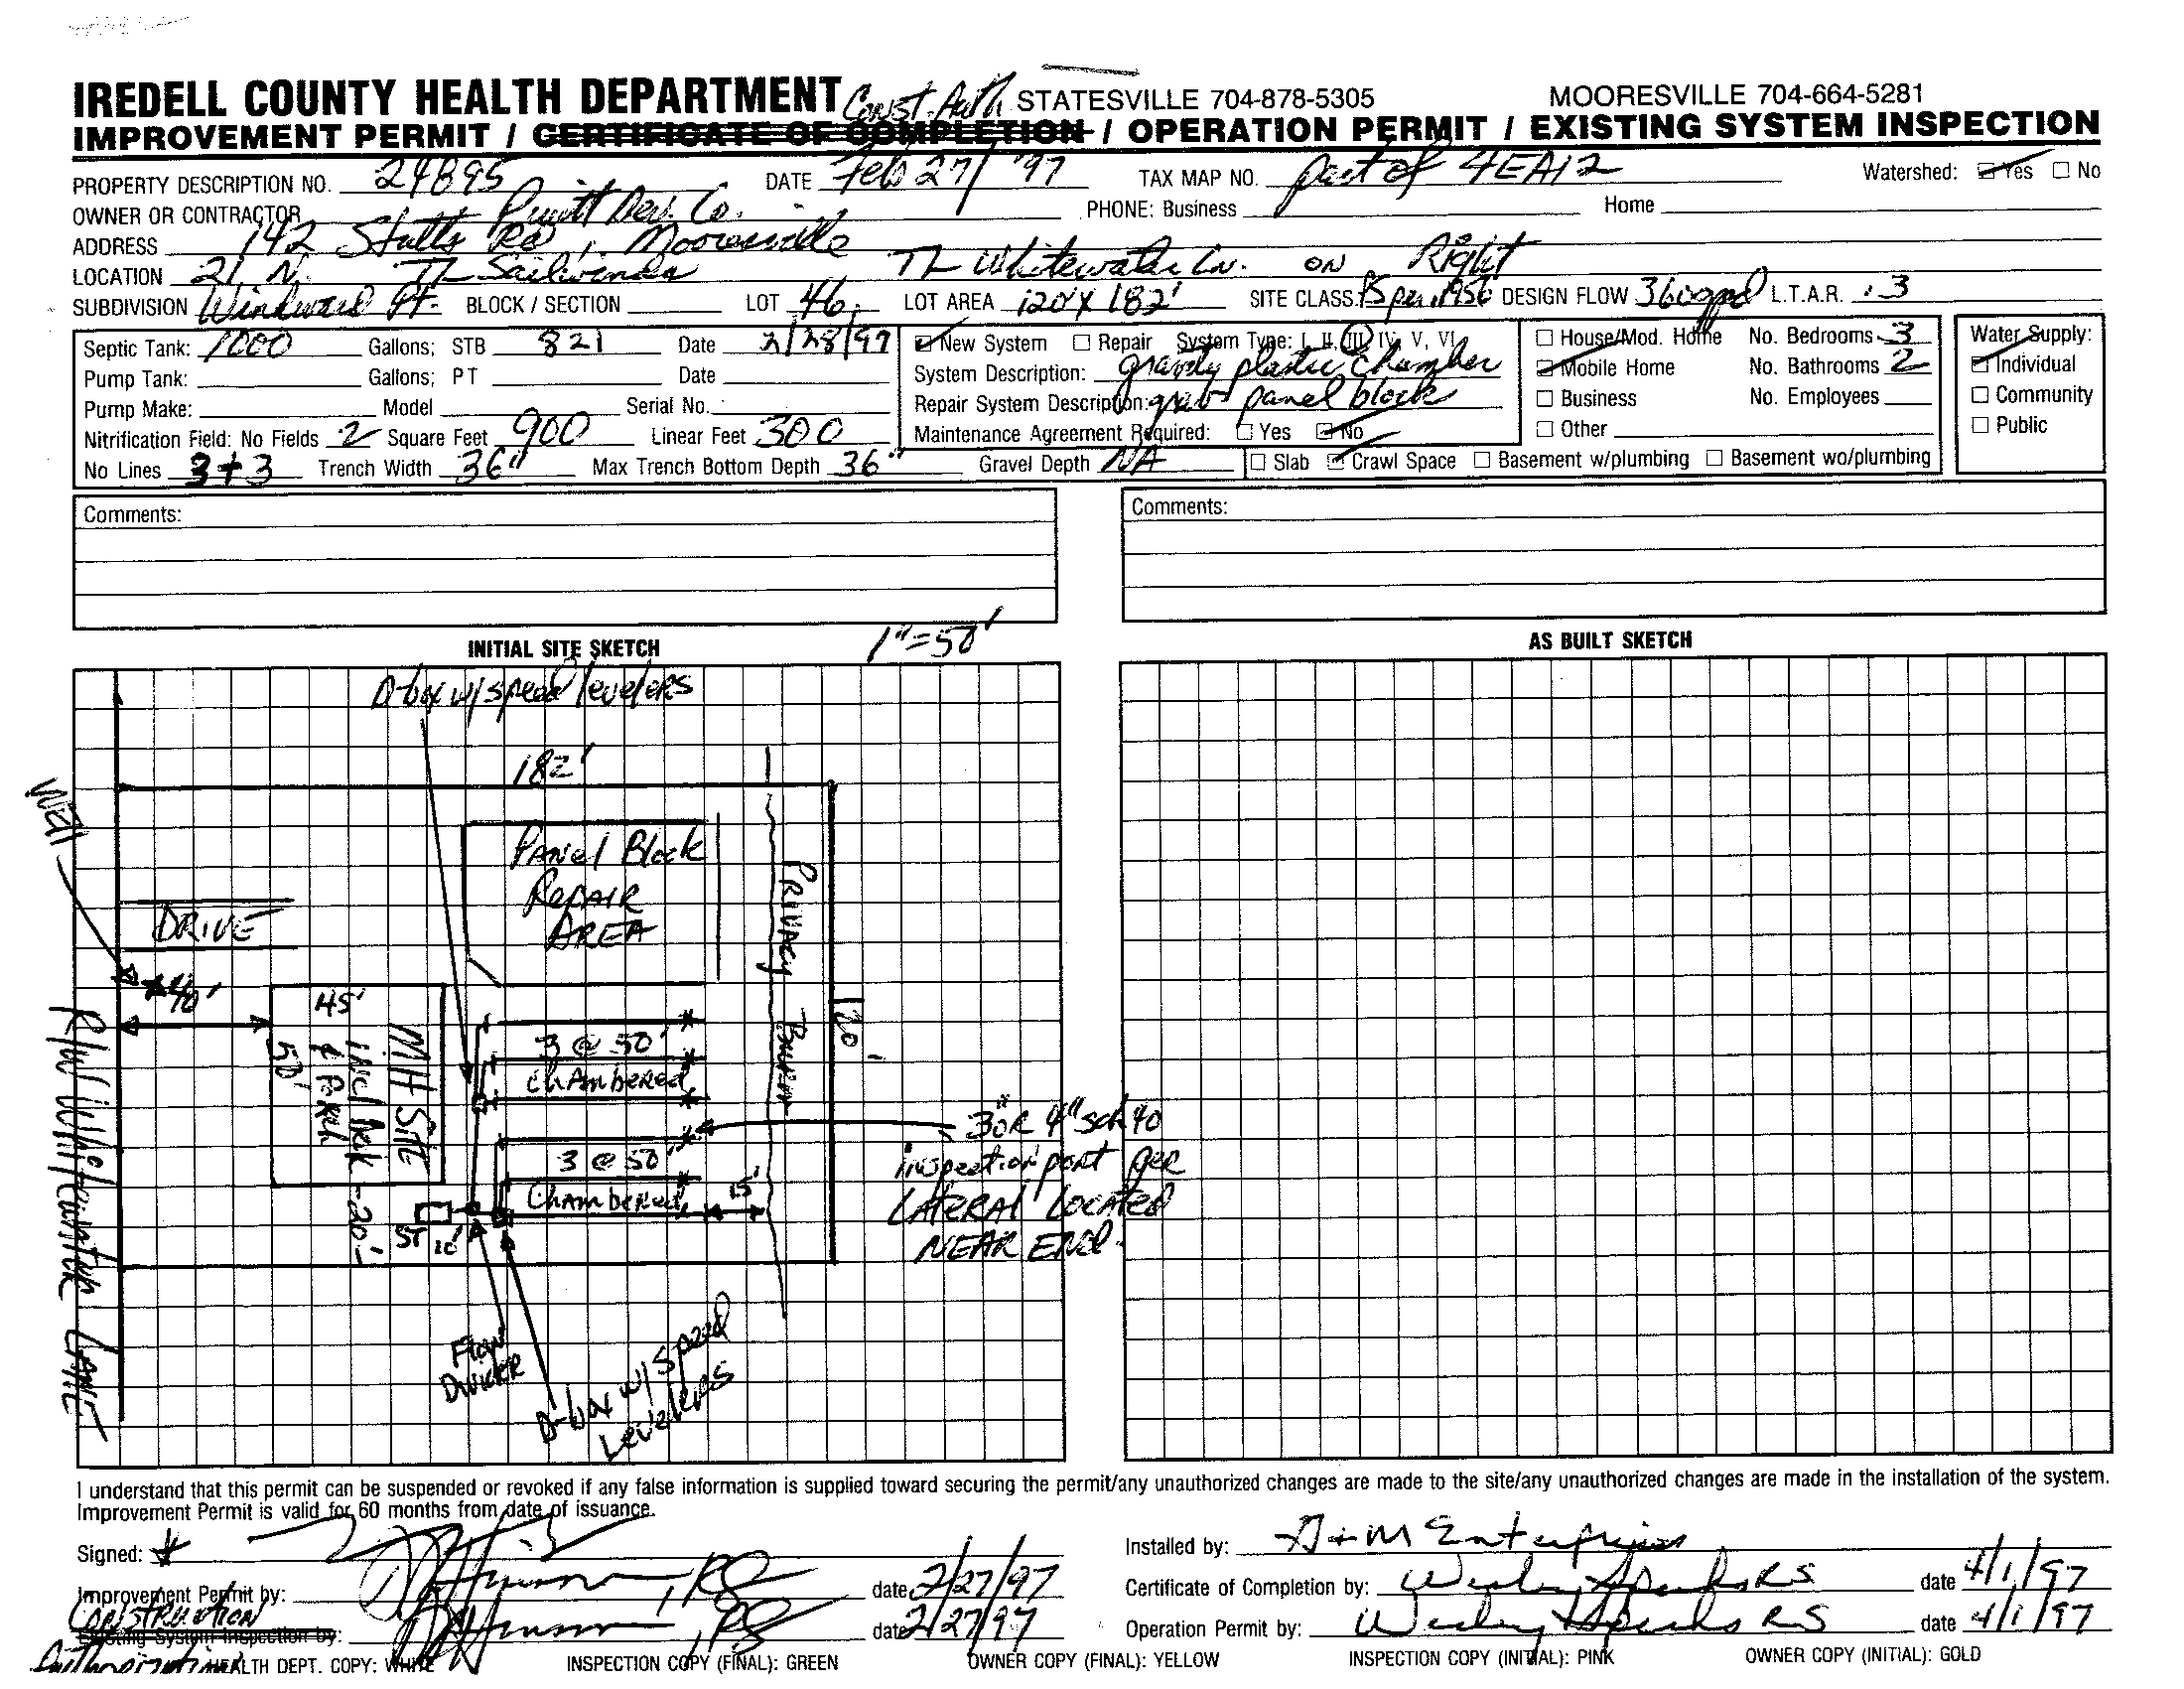 IREDELL COUNTY HEALTH DEPARTMENT Const. Auth STATESVILLE 704-878-5305 MOORESVILLE 704-664-5281
IMPROVEMENT PERMIT / CERTIFICATE OF COMPLETION / OPERATION PERMIT / EXISTING SYSTEM INSPECTION
PROPERTY DESCRIPTION NO. 24895 DATE Feb 27/ '97 TAX MAP NO. part of 4EA12 Watershed: Yes No
OWNER OR CONTRACTOR Pruitt Dev. Co. PHONE: Business Home
ADDRESS 142 Stutts Rd, Mooresville
LOCATION 21 N. TL Sailwinds TL Whitewater Ln. ON Right
SUBDIVISION Windward Pt. BLOCK / SECTION LOT 46 LOT AREA 120' X 182' SITE CLASS. PS per .1956 DESIGN FLOW 360gpd L.T.A.R. .3
Septic Tank: 1000 Gallons; STB 821 Date 2/28/97
Pump Tank: Gallons; PT Date
Pump Make: Model Serial No.
Nitrification Field: No Fields 2 Square Feet 900 Linear Feet 300
No Lines 3+3 Trench Width 36" Max Trench Bottom Depth 36" Gravel Depth NA
New System Repair System Type: I, II, III, IV, V, VI
System Description: gravity plastic chamber
Repair System Description: grav panel block
Maintenance Agreement Required: Yes No
Slab Crawl Space Basement w/plumbing Basement wo/plumbing
House/Mod. Home No. Bedrooms 3
Mobile Home No. Bathrooms 2
Business No. Employees
Other
Water Supply:
Individual
Community
Public
Comments:
Comments:
INITIAL SITE SKETCH 1"=50'
AS BUILT SKETCH
D-box w/ speed levelers
182'
Well
PANel Block
RepAIR
AREA
DRIVE
PRIVACY
40'
45'
50'
MH SITE
incl Deck
& Porch
120'
3 @ 50'
ChAmbered
3 @ 50'
ChAmbered
15'
3" OR 4" sch 40
inspection port per
LATERAl LOCATED
NEAR END.
ST 10'
20'
R/W Whitewater LANE
Flow
Divider
D-box w/ Speed
Levelers
I understand that this permit can be suspended or revoked if any false information is supplied toward securing the permit/any unauthorized changes are made to the site/any unauthorized changes are made in the installation of the system.
Improvement Permit is valid for 60 months from date of issuance.
Signed:
Improvement Permit by: , RS date 2/27/97
CONSTRUCTION
Existing System Inspection by: , RS date 2/27/97
Authorization
Installed by: D+M Enterprises
Certificate of Completion by: Wesley Speaks RS date 4/1/97
Operation Permit by: Wesley Speaks RS date 4/1/97
HEALTH DEPT. COPY: WHITE INSPECTION COPY (FINAL): GREEN OWNER COPY (FINAL): YELLOW INSPECTION COPY (INITIAL): PINK OWNER COPY (INITIAL): GOLD